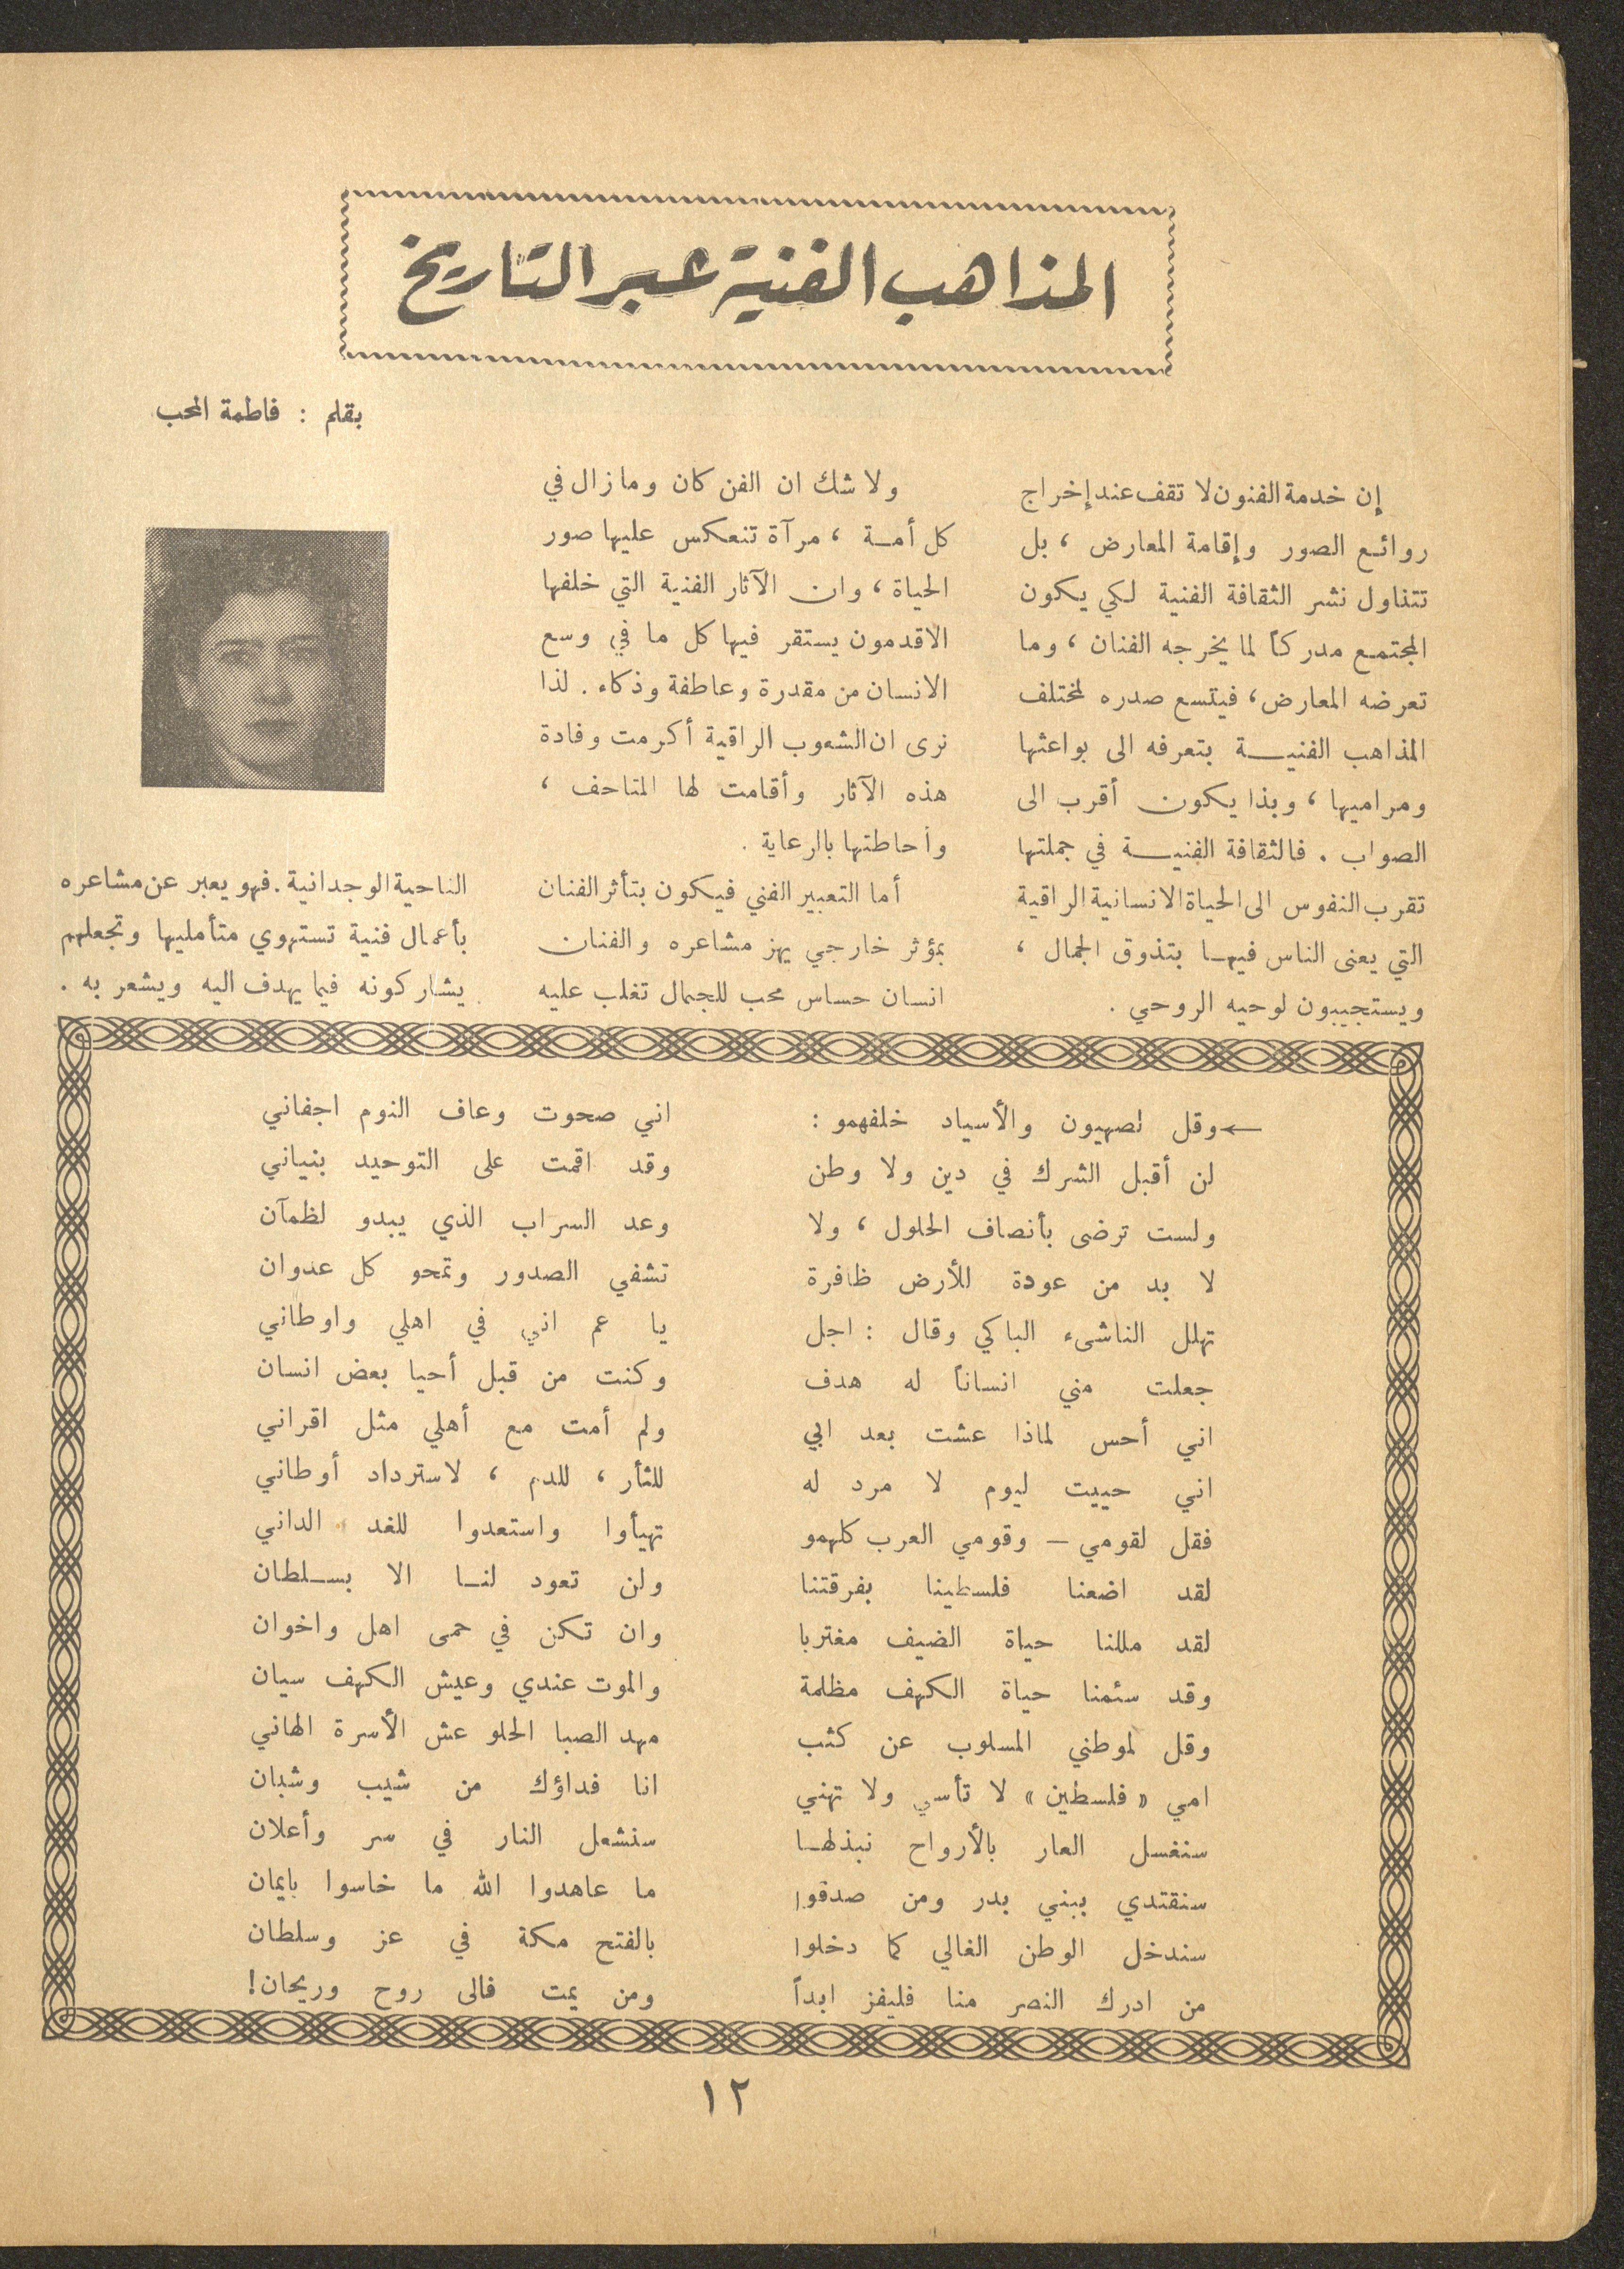 المذاهب الفنية عبر التاريخ
بقلم : فاطمة المحب
إن خدمة الفنون لا تقف عند إخراج
روائع الصور وإقامة المعارض ، بل
تتناول نشر الثقافة الفنية لكي يكون
المجتمع مدركاً لما يخرجه الفنان ، وما
تعرضه المعارض ، فيتسع صدره لمختلف
المذاهب الفنيـة بتعرفه الى بواعثها
ومراميها ، وبذا يكون أقرب الى
الصواب . فالثقافة الفنيـة في جملتها
تقرب النفوس الى الحياة الانسانية الراقية
التي يعنى الناس فيها بتذوق الجمال ،
ويستجيبون لوحيه الروحي .
ولا شك ان الفن كان وما زال في
كل أمـة ، مرآة تنعكس عليها صور
الحياة ، وان الآثار الفنية التي خلفها
الاقدمون يستقر فيها كل ما في وسع
الانسان من مقدرة وعاطفة وذكاء . لذا
نرى ان الشعوب الراقية أكرمت وفادة
هذه الآثار وأقامت لها المتاحف ،
وأحاطتها بالرعاية .
أما التعبير الفني فيكون بتأثر الفنان
بمؤثر خارجي يهز مشاعره والفنان
انسان حساس محب للجمال تغلب عليه
الناحية الوجدانية . فهو يعبر عن مشاعره
بأعمال فنية تستهوي متأمليها وتجعلهم
يشاركونه فيما يهدف اليه ويشعر به .
←وقل لصهيون والأسياد خلفهمو : اني صحوت وعاف النوم اجفاني
لن أقبل الشرك في دين ولا وطن وقد اقمت على التوحيد بنياني
ولست ترضى بأنصاف الحلول ، ولا وعد السراب الذي يبدو لظمآن
لا بد من عودة للأرض ظافرة تشفي الصدور وتمحو كل عدوان
تهلل الناشىء الباكي وقال : اجل يا عم اني في اهلي واوطاني
جعلت مني انساناً له هدف وكنت من قبل أحيا بعض انسان
اني أحس لماذا عشت بعد ابي ولم أمت مع أهلي مثل اقراني
اني حييت ليوم لا مرد له للثأر ، للدم ، لاسترداد أوطاني
فقل لقومي – وقومي العرب كلهمو تهيأوا واستعدوا للغد الداني
لقد اضعنا فلسطينا بفرقتنا ولن تعود لنـا الا بسـلطان
لقد مللنا حياة الضيف مغتربا وان تكن في حمى اهل واخوان
وقد سئمنا حياة الكهف مظلمة والموت عندي وعيش الكهف سيان
وقل لموطني المسلوب عن كثب مهد الصبا الحلو عش الأسرة الهاني
امي « فلسطين » لا تأسي ولا تهني انا فداؤك من شيب وشبان
سنغسل العار بالأرواح نبذلهـا سنشعل النار في سر وأعلان
سنقتدي ببني بدر ومن صدقوا ما عاهدوا الله ما خاسوا بايمان
سندخل الوطن الغالي كما دخلوا بالفتح مكة في عز وسلطان
من ادرك النصر منا فليفز ابداً ومن يمت فالى روح وريحان!
١٢